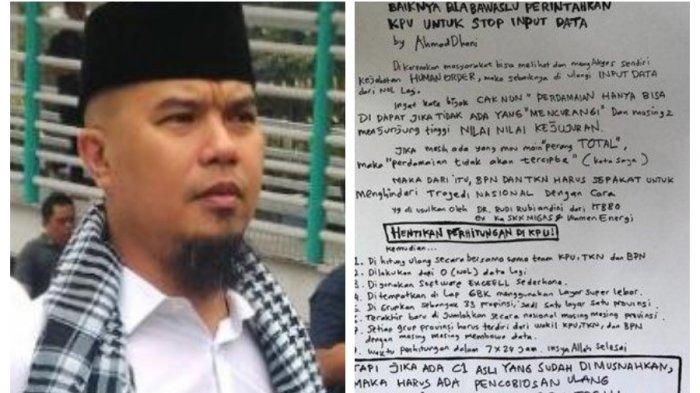 BAIKNYA BILA BAWASLU PERINTAHKAN
KPU UNTUK STOP INPUT DATA
by Ahmad Dhani
Dikarenakan masyarakat bisa melihat dan mengakses sendiri
kejahatan HUMAN ORDER, maka sebaiknya di ulangi INPUT DATA
dari NOL Lagi.
Ingat kata bijak CAK NUN "PERDAMAIAN HANYA BISA
DI DAPAT JIKA TIDAK ADA YANG "MENCURANGI" Dan masing2
menjunjung tinggi NILAI NILAI KEJUJURAN.
JIKA masih ada yang mau main "perang TOTAL",
maka "perdamaian tidak akan tercipta" (kata saya)
MAKA DARI ITU, BPN DAN TKN HARUS SEPAKAT UNTUK
Menghindari Tragedi NASIONAL Dengan Cara
yg di usulkan oleh DR. RUDI Rubiandini dari ITB80
ex Ka SKK MIGAS & Wamen Energi
HENTIKAN PERHITUNGAN DI KPU!
Kemudian...
1. Di hitung ulang secara bersama sama team KPU, TKN dan BPN
2. Dilakukan dari 0 (NOL) data lagi
3. Digunakan Software EXCELL Sederhana.
4. Ditempatkan di Lap GBK menggunakan Layar Super lebar.
5. Di Grupkan sebanyak 33 propinsi, Jadi Satu layar Satu provinsi.
6. Terakhir baru di Jumlahkan secara nasional masing masing provinsi.
7. Setiap grup provinsi harus terdiri dari wakil KPU, TKN, dan BPN
dengan masing masing membawa data.
waktu perhitungan dalam 7x24 Jam. insya Allah selesai
TAPI JIKA ADA C1 ASLI YANG SUDAH DI MUSNAHKAN,
MAKA HARUS ADA PENCOBLOSAN ULANG